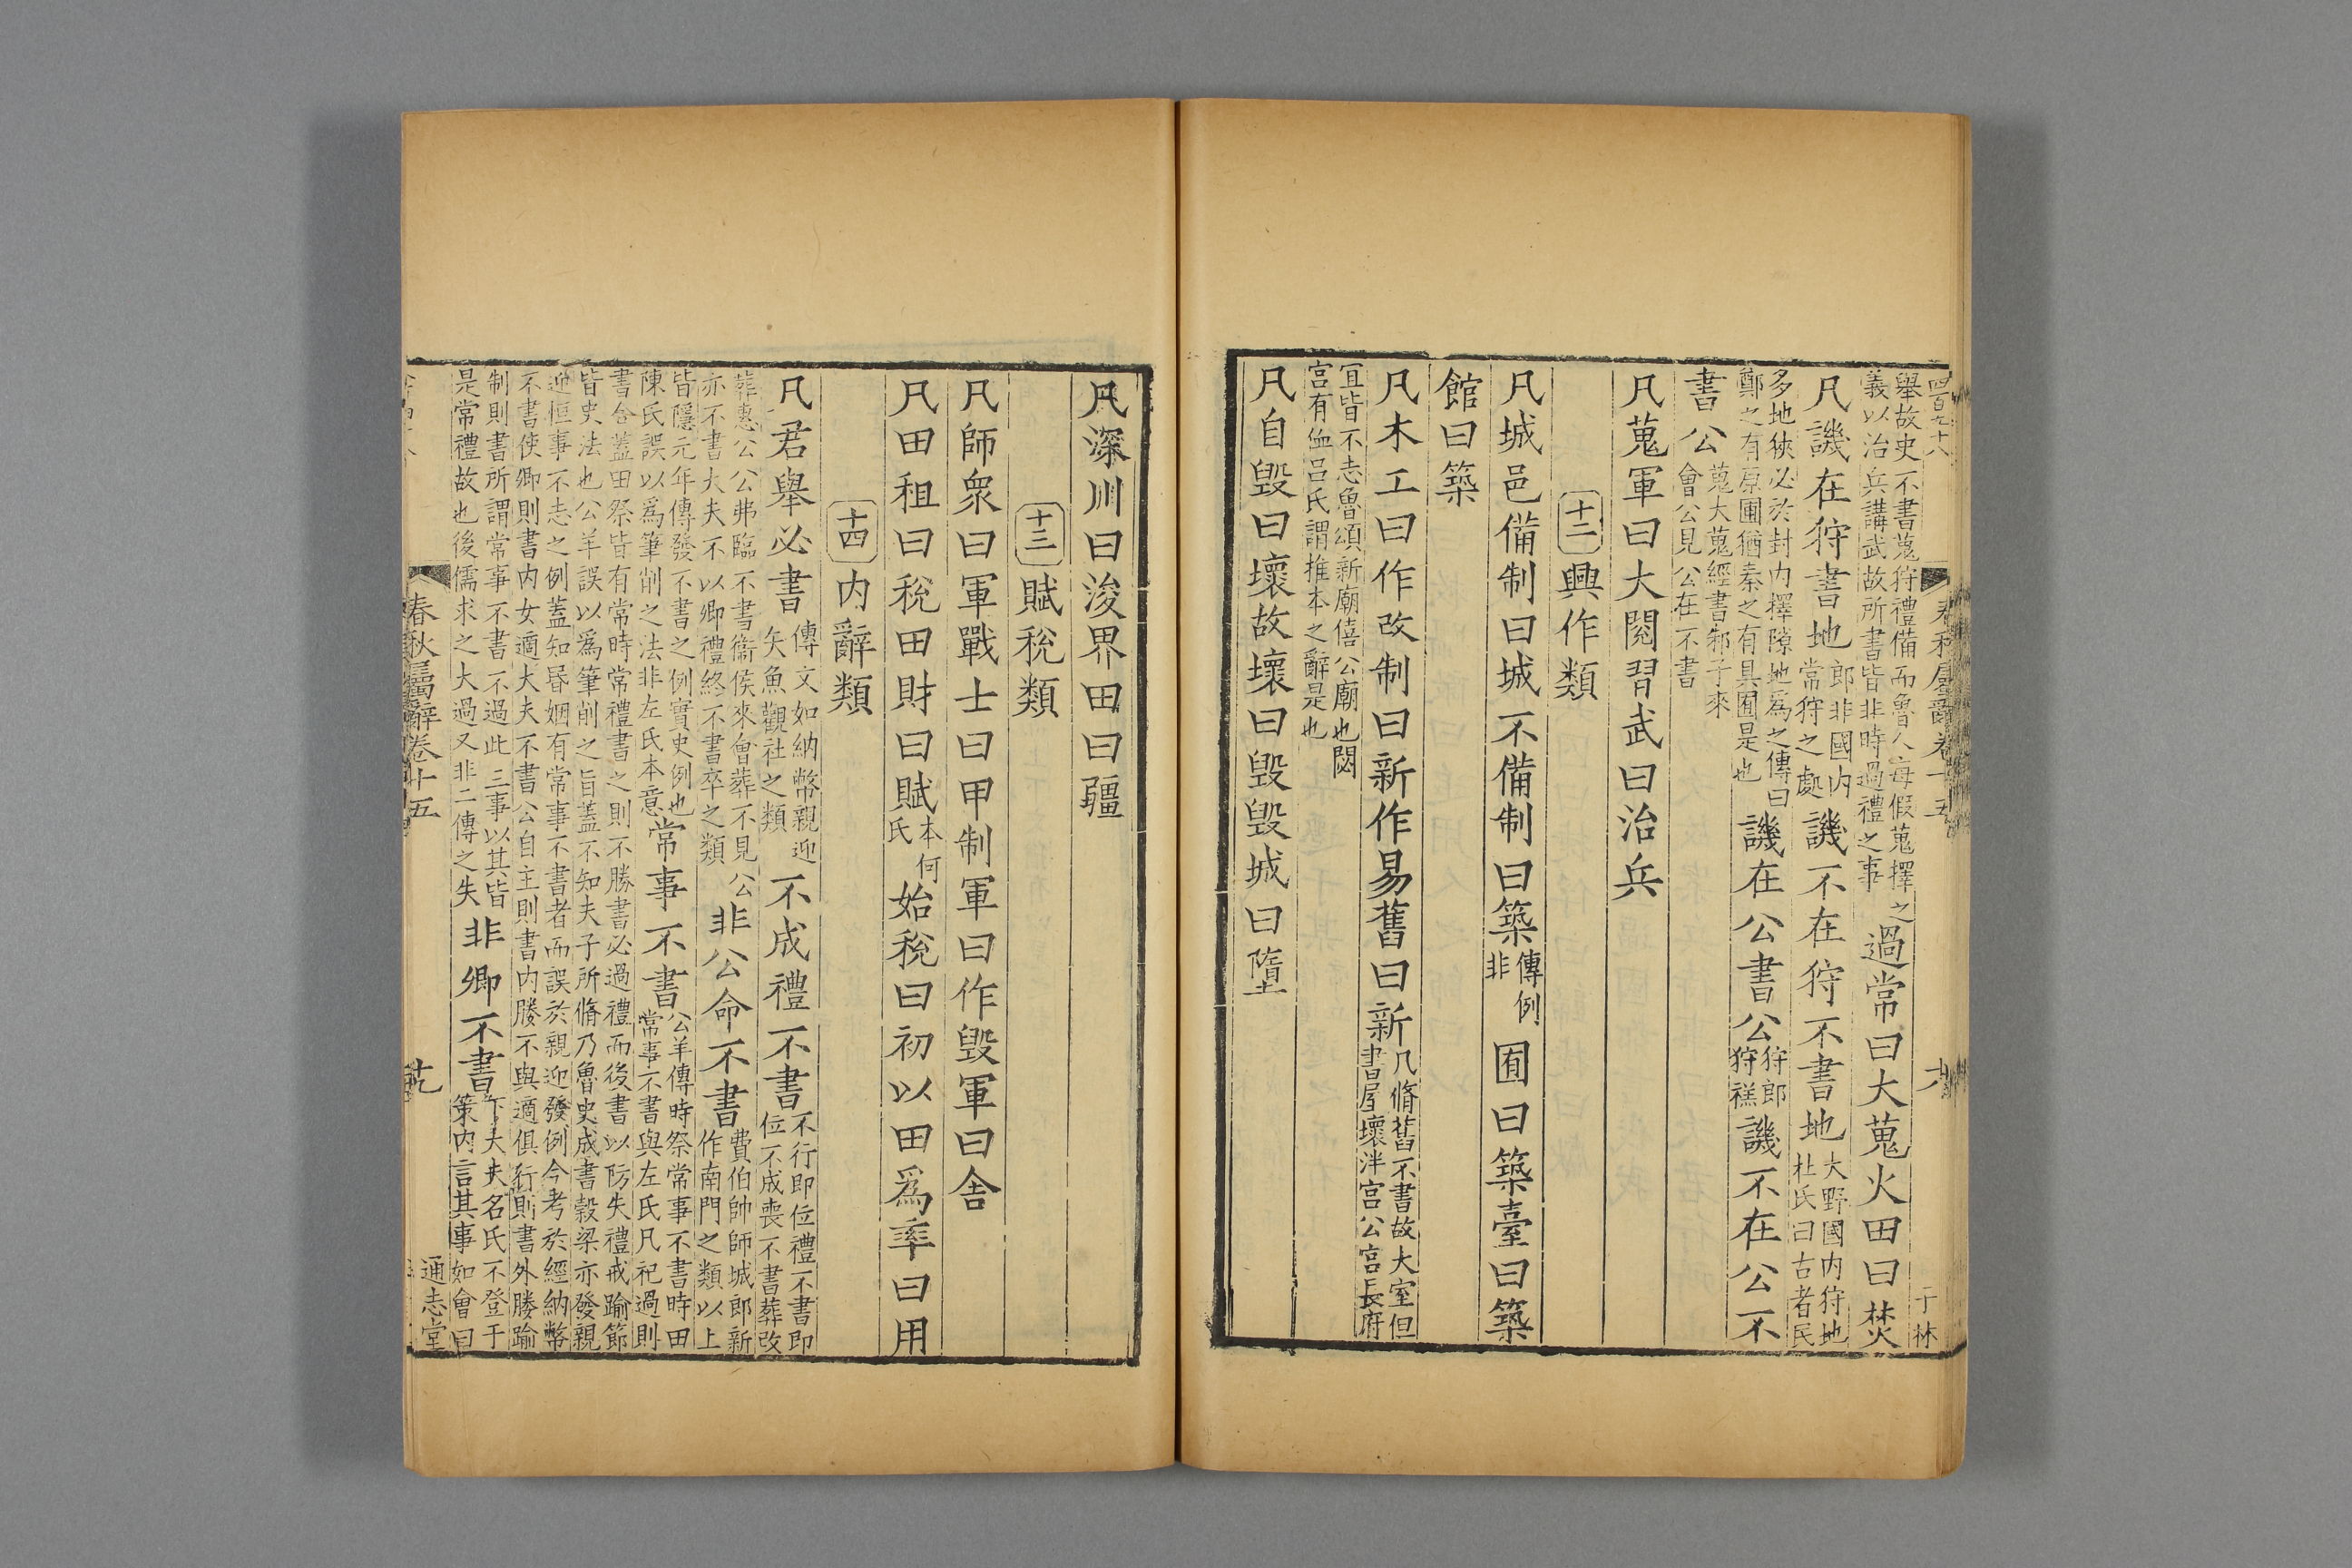 四百九十八
春秋屬辭卷十五
十八
于林
舉故史不書蒐狩禮備而魯人每假蒐擇之
義以治兵講武故所書皆非時過禮之事
過常曰大蒐火田曰焚
凡譏在狩書地
郎非國内
常狩之處
譏不在狩不書地
大野國内狩地
杜氏曰古者民
多地狹必於封内擇隙地爲之傳曰
鄭之有原圃猶秦之有具囿是也
譏在公書公
狩郎
狩禚
譏不在公不
書公
蒐大蒐經書邾子來
會公見公在不書
凡蒐軍曰大閱習武曰治兵
十二
興作類
凡城邑備制曰城不備制曰築
傳例
非
囿曰築臺曰築
館曰築
凡木工曰作改制曰新作易舊曰新
凡脩舊不書故大室但
書屋壞泮宫公宫長府
宜皆不志魯頌新廟僖公廟也閟
宫有侐吕氏謂推本之辭是也
凡自毀曰壞故壞曰毀毀城曰墮
凡深川曰浚界田曰疆
十三
賦稅類
凡師衆曰軍戰士曰甲制軍曰作毀軍曰舍
凡田租曰稅田財曰賦
本何
氏
始稅曰初以田爲率曰用
十四
内辭類
凡君舉必書
傳文如納幣親迎
矢魚觀社之類
不成禮不書
不行即位禮不書即
位不成喪不書葬改
葬惠公公弗臨不書衞侯來會葬不見公
亦不書大夫不以卿禮終不書卒之類
非公命不書
費伯帥師城郎新
作南門之類以上
皆隱元年傳發不書之例實史例也
陳氏誤以爲筆削之法非左氏本意
常事不書
公羊傳時祭常事不書時田
常事不書與左氏凡祀過則
書合蓋田祭皆有常時常禮書之則不勝書必過禮而後書以防失禮戒踰節
皆史法也公羊誤以爲筆削之旨蓋不知夫子所脩乃魯史成書穀梁亦發親
迎恒事不志之例蓋知昬姻有常事不書者而誤於親迎發例今考於經納幣
不書使卿則書内女適大夫不書公自主則書内媵不與適俱行則書外媵踰
制則書所謂常事不書不過此三事以其皆
是常禮故也後儒求之大過又非二傳之失
非卿不書
下大夫名氏不登于
策内言其事如會曰
春秋屬辭卷十五
十九
通志堂